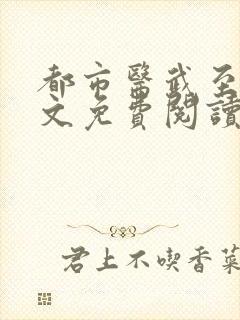 都市醫武至
文免費閱讀
君上不喫香菜